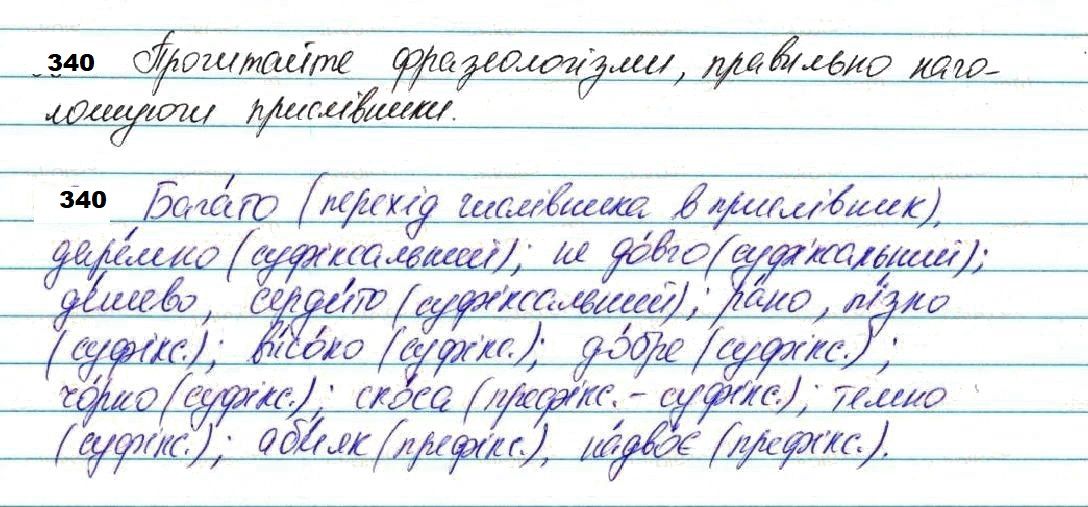 340 Прочитайте фразеологізми, правильно наго-
лошуючи прислівники.
340 Бага́то (перехід числівника в прислівник),
даре́мно (суфіксальний); не до́вго (суфіксальний);
де́шево, серди́то (суфіксальний); ра́но, пі́зно
(суфікс.); висо́ко (суфікс.); до́бре (суфікс.);
чо́рно (суфікс.); ско́са (префікс. - суфікс.); темно
(суфікс.); аби́як (префікс.), на́дво́є (префікс.).